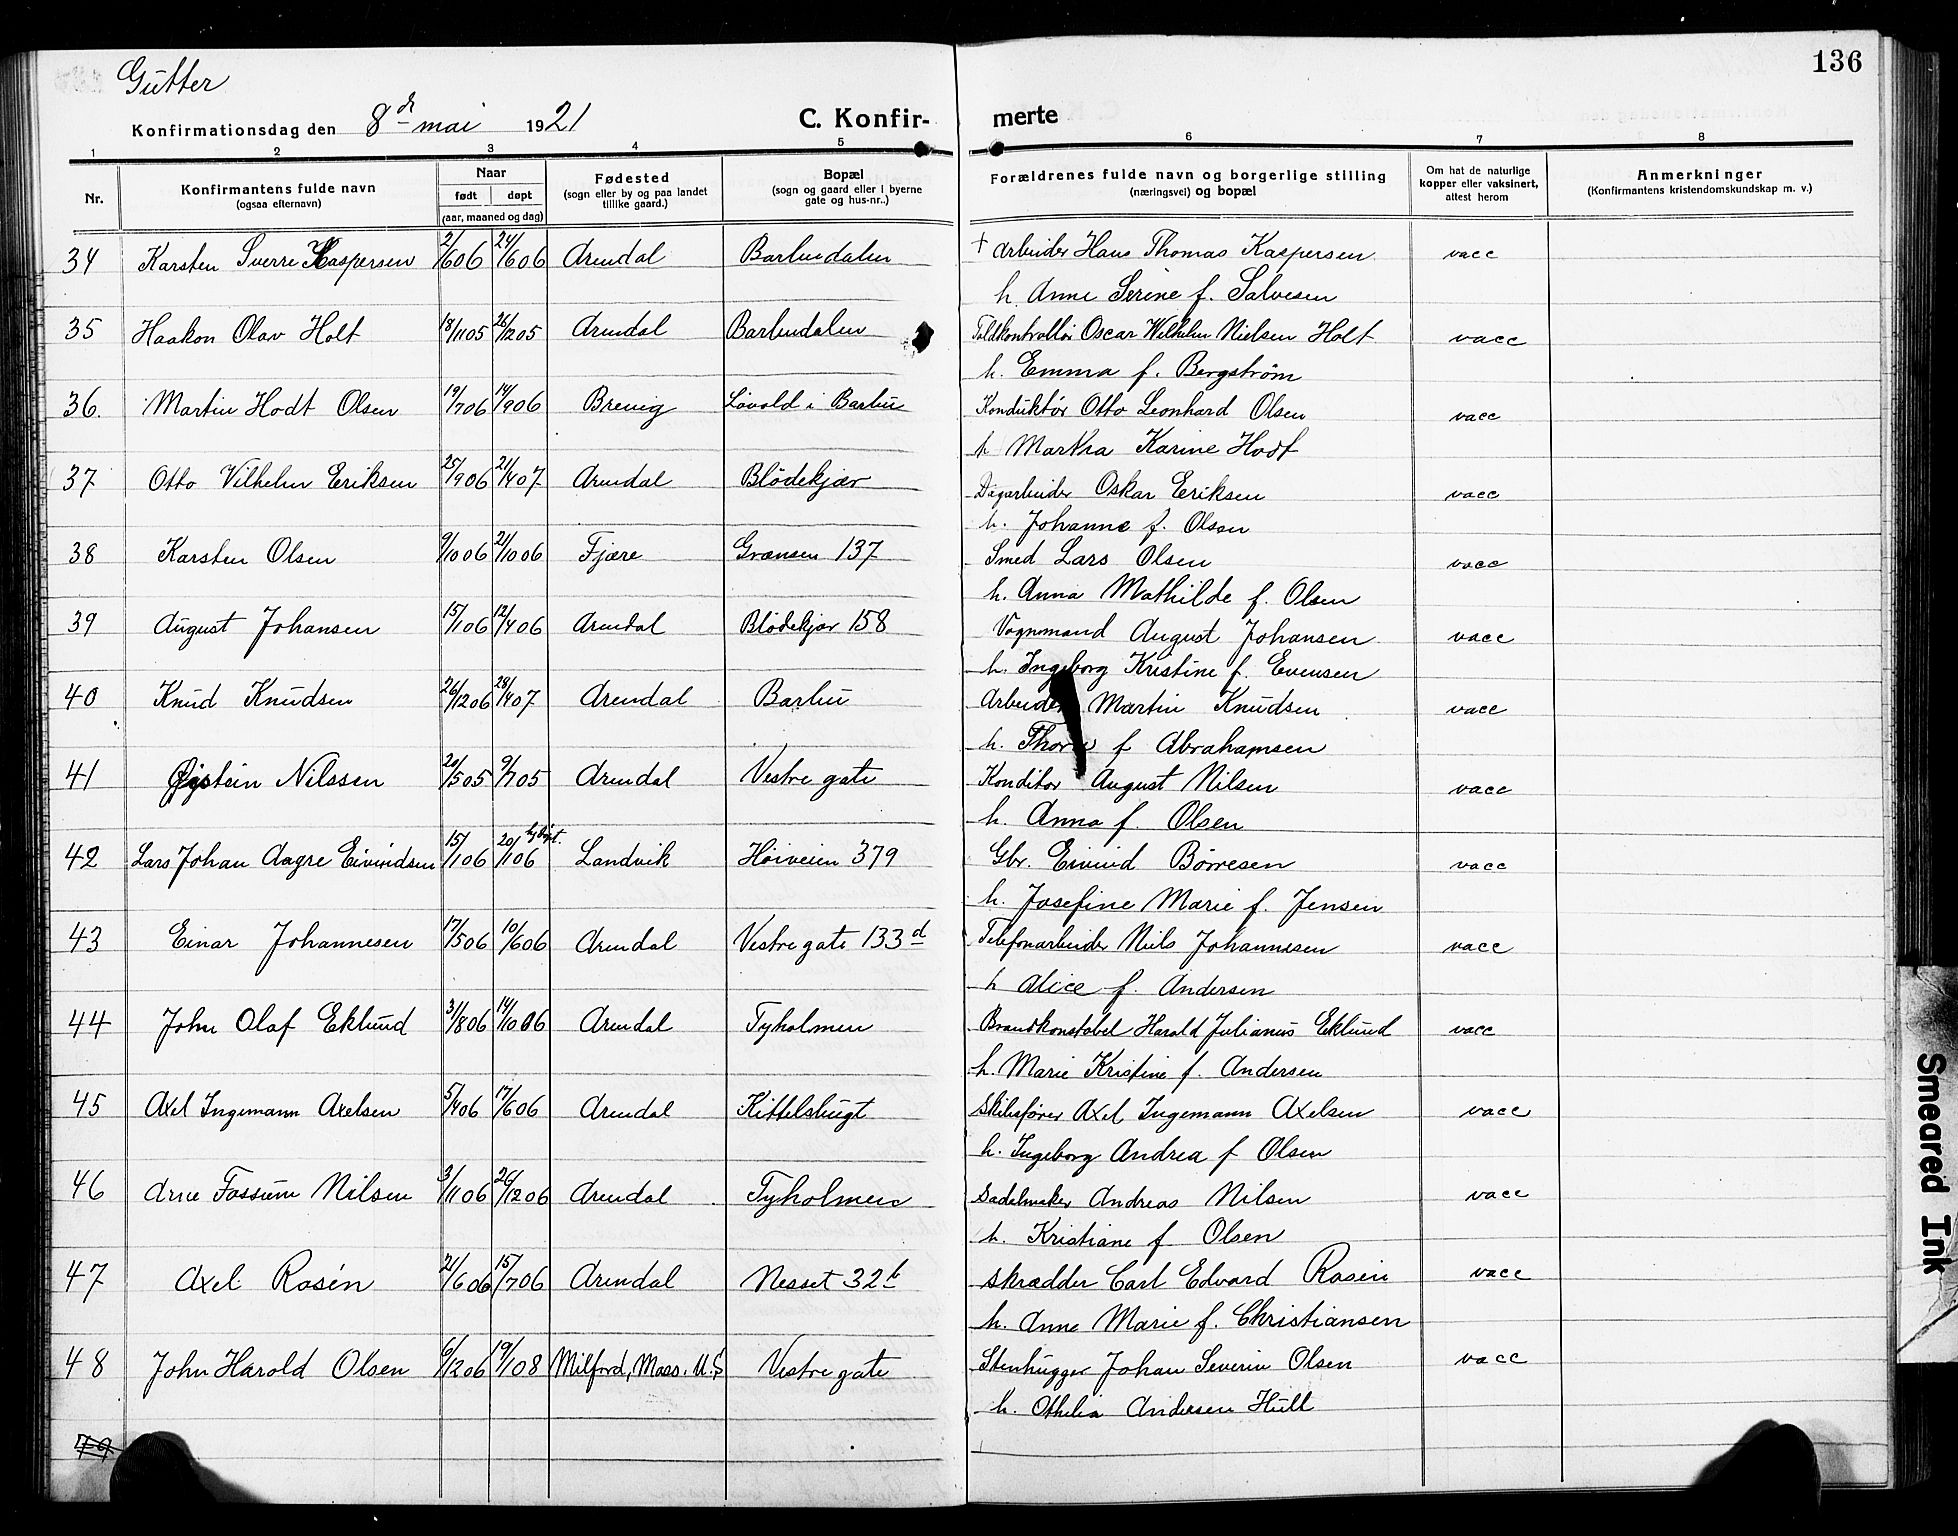 136
Gutter
Konfirmationsdag den 8de mai 1921 C. Konfirmerte
1 2 3 4 5 6 7 8
Nr.
Konfirmantens fulde navn
(ogsaa efternavn)
Naar
født døpt
(aar, maaned og dag)
Fødested
(sogn eller by og paa landet
tillike gaard.)
Bopæl
(sogn og gaard eller i byerne
gate og hus-nr..)
Forældrenes fulde navn og borgerlige stilling
(næringsvei) og bopæl
Om hat de naturlige
kopper eller vaksinert,
attest herom
Anmerkninger
(Konfirmantens kristendomskundskap m. v.)
34 Karsten Sverre Kaspersen 2/6 06 24/6 06 Arendal Barbudalen † Arbeider Hans Thomas Kaspersen vacc
h. Anne Serine f. Salvesen
35 Haakon Olav Holt 18/11 05 26/12 05 Arendal Barbudalen Toldkontrollør Oscar Wilhelm Nielsen Holt vacc
h. Emma f. Bergstrøm
36. Martin Hodt Olsen 19/7 06 14/9 06 Brevig Løvold i Barbu Konduktør Otto Leonhard Olsen vacc
h Martha Karine Hodt
37 Otto Vilhelm Eriksen 25/9 06 21/4 07 Arendal Blødekjær Dagarbeider Oskar Eriksen vacc
h. Johanne f. Olsen
38 Karsten Olsen 9/10 06 21/10 06 Fjære Grænsen 137 Smed Lars Olsen vacc
h. Anna Mathilde f. Olsen
39 August Johansen 15/1 06 12/4 06 Arendal Blødekjær 158 Vognmand August Johansen vacc
h. Ingeborg Kristine f. Evensen
40 Knud Knudsen 26/12 06 28/4 07 Arendal Barbu Arbeider Martin Knudsen vacc
h. Thora f Abrahamsen
41 Øistein Nilssen 20/5 05 9/7 05 Arendal Vestre gate Konditor August Nilsen vacc
h. Anna f. Olsen
42 Lars Johan Aagre Eivindsen 15/1 06 20/1 06 hj.døpt. Landvik Høiveien 379 Gbr. Eivind Børresen vacc
h. Josefine Marie f. Jensen
43 Einar Johannesen 17/5 06 10/6 06 Arendal Vestre gate 133d Telefonarbeider Niels Johannesen vacc
h Alice f. Andersen
44 John Olaf Eklund 31/8 06 14/10 06 Arendal Tyholmen Brandkonstabel Harald Julianus Eklund vacc
h. Marie Kristine f. Andersen
45 Axel Ingemann Axelsen 5/4 06 17/6 06 Arendal Kittelsbugt Skibsfører Axel Ingemann Axelsen vacc
h. Ingeborg Andrea f Olsen
46 Arne Fossum Nilsen 3/11 06 26/12 06 Arendal Tyholmen Sadelmaker Andreas Nilsen vacc
h. Kristiane f Olsen
47 Axel Rosén 21/6 06 15/7 06 Arendal Nesset 32b skrædder Carl Edvard Rosén vacc
h. Anne Marie f. Christiansen
48 John Harold Olsen 6/12 06 19/1 08 Milford, Mass. U.S Vestre gate Stenhugger Johan Severin Olsen vacc
h. Othelia Andersen Hull
Smeared Ink